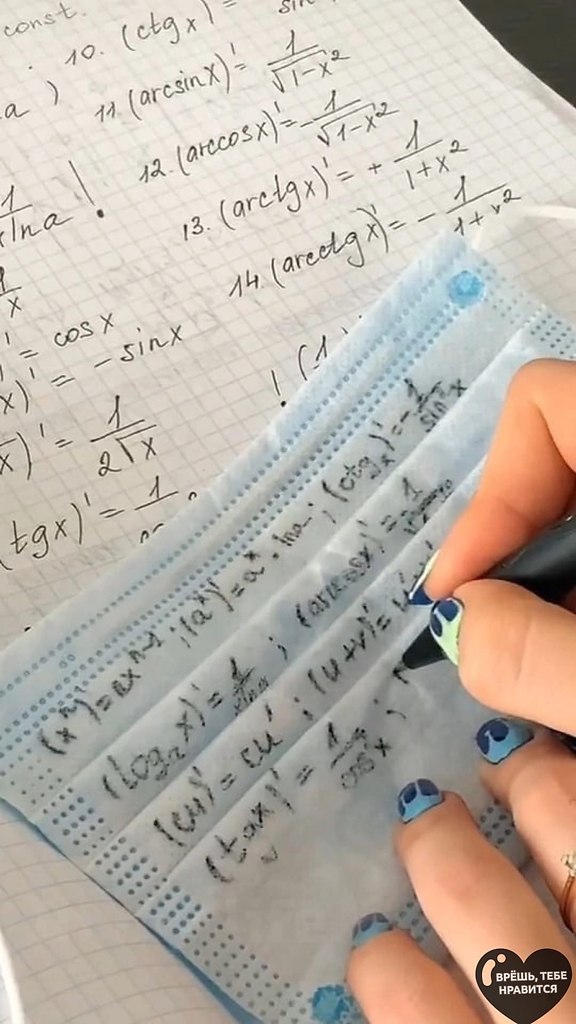 const.
10. (ctgx)' = sin
a)
11. (arcsinx)' = 1/√1-x²
12. (arccosx)' = -1/√1-x²
13. (arctgx)' = + 1/1+x²
14. (arcctgx)' = - 1/1+x²
1/xlna !
1/x
' = cosx
x)' = -sinx
x)' = 1/2√x
(tgx)' = 1
! (1
(xⁿ)' = nxⁿ⁻¹ ; (aˣ)' = aˣ · lna ; (ctgx)' = - 1/sin²x
(logₐx)' = 1/xlna ; (arccosx)' = 1
(cu)' = cu' ; (u+v)' = u'
(tgx)' = 1/cos²x ;
ВРЁШЬ, ТЕБЕ
НРАВИТСЯ